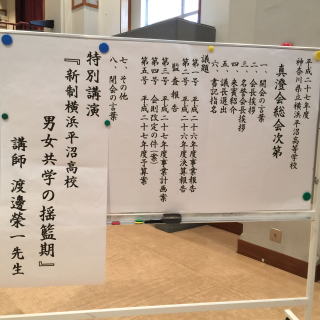 平成二十七年度
神奈川県立横浜平沼高等学校
真澄会総会次第
一、開会の言葉
二、会長挨拶
三、名誉会長挨拶
四、来賓紹介
五、議長選出
六、書記指名
議題
第一号　平成二十六年度事業報告
第二号　平成二十六年度決算報告
監査報告
第三号　平成二十七年度事業計画案
第四号　会則改定の件(案)
第五号　平成二十七年度予算案
七、その他
八、閉会の言葉
特別講演
『新制横浜平沼高校
男女共学の揺籃期』
講師　渡邉榮一先生